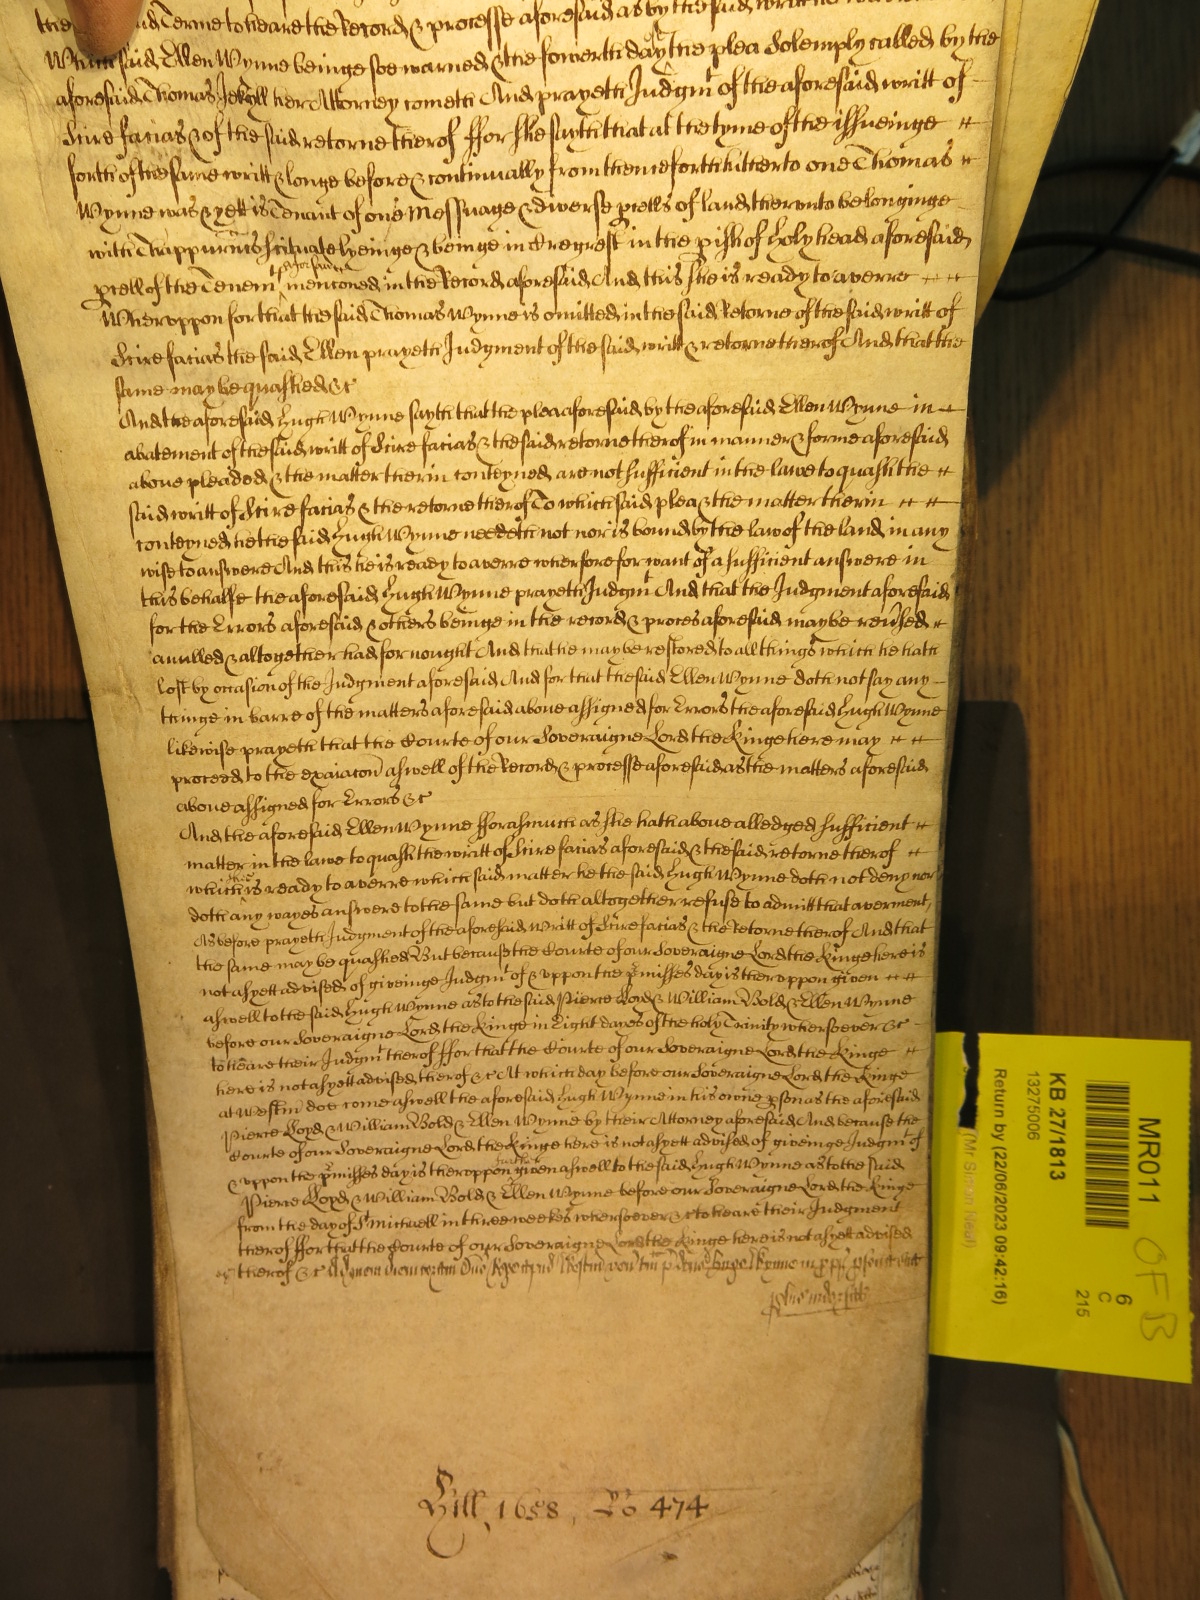 the said Terme to heare the Record & processe aforesaid as by the said writt
Which said Ellen Wynne beinge soe warned & the fowerth day of the plea Solemply called by the
aforesaid Thomas Jekyll her Attorney cometh And prayeth Judgmt of the aforesaid writt of
Scire facias & of the said retorne therof ffor she sayth that at the tyme of the issueinge
forth of the same writt & longe before & continually from thenceforth hitherto one Thomas
Wynne was & yett is Tenant of one Messuage & diverse pcells of land therunto belonginge
with Thappurtnnces scituate lyeinge & beinge in in the pish of Holy head aforesaid
pcell of the Tenemts aforesaid menconed in the Record aforesaid And this she is ready to averre
Wheruppon for that the said Thomas Wynne is omitted in the said Retorne of the said writt of
Scire facias the said Ellen prayeth Judgment of the said writt & retorne therof And that the
same may be quashed &c
And the aforesaid Hugh Wynne sayth that the plea aforesaid by the aforesaid Ellen Wynne in
abatement of the said writt of Scire facias & the said retorne therof in manner & forme aforesaid
above pleaded & the matter therin conteyned are not sufficient in the lawe to quash the
said writt of Scire facias & the retorne therof To which said plea & the matter therin
conteyned he the said Hugh Wynne needeth not nor is bound by the law of the land in any
wise to answere And this he is ready to averre wherfore for want of a sufficient answere in
this behalfe the aforesaid Hugh Wynne prayeth Judgmt And that the Judgment aforesaid
for the Errors aforesaid & others beinge in the record & proces aforesaid may be revsed
anulled & altogether had for nought And that he may be restored to all things which he hath
lost by occasion of the Judgment aforesaid And for that the said Ellen Wynne doth not say any
thinge in barre of the matters aforesaid above assigned for Errors the aforesaid Hugh Wynne
likewise prayeth that the Courte of our Soveraigne Lord the Kinge here may
proceed to the exaiacon aswell of the Record & processe aforesaid as the matters aforesaid
above assigned for Errors &c
And the aforesaid Ellen Wynne fforasmuch as she hath above alledged sufficient
matter in the lawe to quash the writt of Scire facias aforesaid & the said retorne therof
which she is ready to averre which said matter he the said Hugh Wynne doth not deny nor
doth any wayes answere to the same but doth altogether refuse to admitt that averment
As before prayeth Judgment of the aforesaid Writt of Scire facias & the Retorne therof And that
the same may be quashed But because the Courte of our Soveraigne Lord the Kinge here is
not as yett advised of giveinge Judgmt of & uppon the pmisses day is theruppon given
aswell to the said Hugh Wynne as to the said Pierce Lloyd & William Bold & Ellen Wynne
before our Soveraigne Lord the Kinge in Eight dayes of the holy Trinity whersoever &c
to heare their Judgmt therof ffor that the Courte of our Soveraigne Lord the Kinge
here is not as yett advised therof &c At which day before our Soveraigne Lord the Kinge
at Westm doe come aswell the aforesaid Hugh Wynne in his owne pson as the aforesaid
Pierce Lloyd & William Bold & Ellen Wynne by their Attorney aforesaid And because the
Courte of our Soveraigne Lord the Kinge here is not as yett advised of giveinge Judgmt of
& uppon the pmisses day is theruppon further given aswell to the said Hugh Wynne as to the said
Pierce Lloyd & William Bold & Ellen Wynne before our Soveraigne Lord the Kinge
from the day of St Michaell in three weekes whersoever &c to heare their Judgment
therof ffor that the Courte of our Soveraigne Lord the Kinge here is not as yett advised
therof &c Ad quem diem coram Dno Rege apud Westm ven tam pd Hugo Wynne in
Hill 1658 Ro 474
MR011
KB 27/1813
13275006
Return by (22/06/2023 09:42:16)
(Mr Simon Neal)
6
C
215
OFB